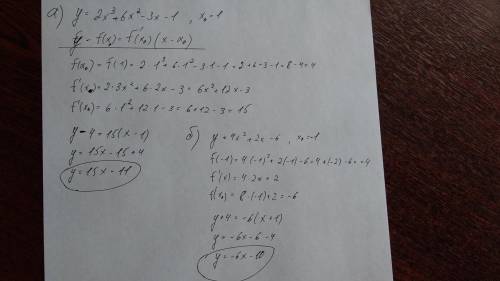 а) y = 2x³+6x²-3x-1 , x₀=1
y - f(x₀) = f'(x₀)(x-x₀)
f(x₀) = f(1) = 2·1³+6·1²-3·1-1 = 2+6-3-1 = 8-4=4
f'(x₀) = 2·3x²+6·2x-3 = 6x²+12x-3
f'(x₀) = 6·1²+12·1-3 = 6+12-3=15
y-4=15(x-1)
y=15x-15+4
y=15x-11
б) y=4x²+2x-6 , x₀=-1
f(-1)=4·(-1)²+2(-1)-6=4+(-2)-6=-4
f'(x)=4·2x+2
f'(x₀)= 8·(-1)+2=-6
y+4=-6(x+1)
y=-6x-6-4
y=-6x-10